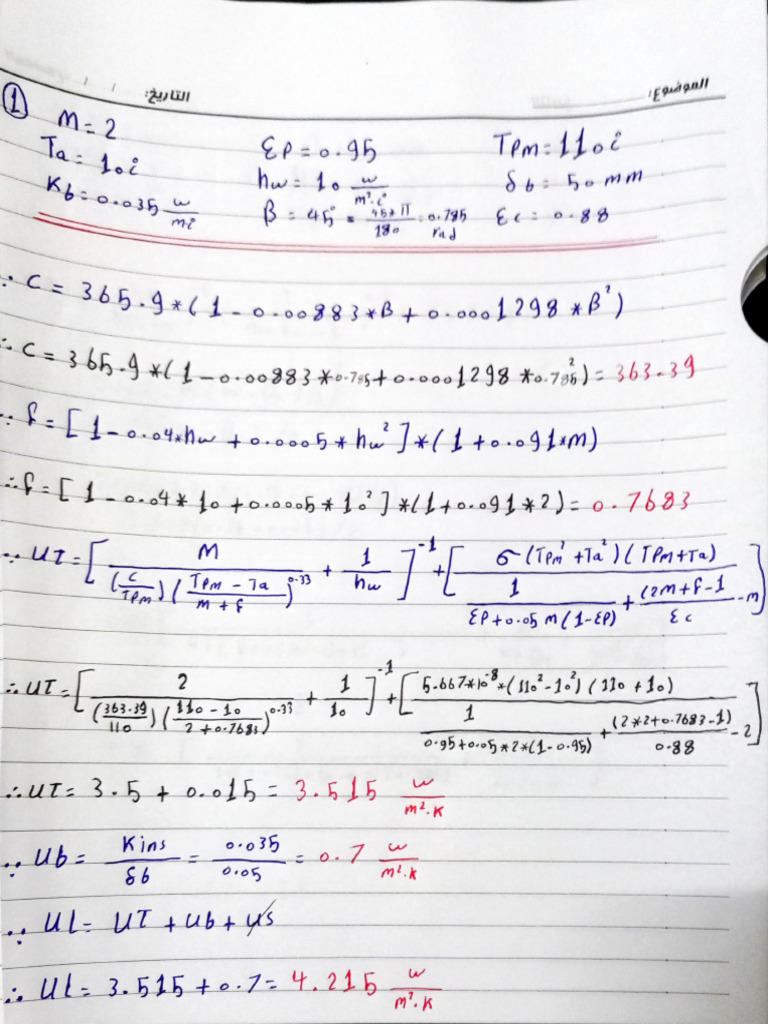 الموضوع: التاريخ: / /
① M = 2 εP = 0.95 TPm = 110i
Ta = 10i hw = 10 w/m².i δb = 50 mm
Kb = 0.035 w/mi β = 45° = 45*π/180 = 0.785 rad εc = 0.88
∵ C = 365.9*(1 - 0.00883*β + 0.0001298*β²)
∴ C = 365.9*(1 - 0.00883*0.785 + 0.0001298*0.785²) = 363.39
∵ f = [1 - 0.04*hw + 0.0005*hw²]*(1 + 0.091*m)
∴ f = [1 - 0.04*10 + 0.0005*10²]*(1 + 0.091*2) = 0.7683
∵ UT = [M/((C/TPm)((TPm - Ta)/(m + f))^0.33) + 1/hw]^-1 + [σ(TPm² + Ta²)(TPm + Ta)/(1/(εP + 0.05m(1 - εP)) + (2m + f - 1)/εc - m)]
∴ UT = [2/((363.39/110)((110 - 10)/(2 + 0.7683))^0.33) + 1/10]^-1 + [5.667*10^-8*(110² - 10²)(110 + 10)/(1/(0.95 + 0.05*2*(1 - 0.95)) + (2*2 + 0.7683 - 1)/0.88 - 2)]
∴ UT = 3.5 + 0.015 = 3.515 w/m².K
∵ Ub = Kins/δb = 0.035/0.05 = 0.7 w/m².K
∵ UL = UT + Ub + Us
∴ UL = 3.515 + 0.7 = 4.215 w/m².K